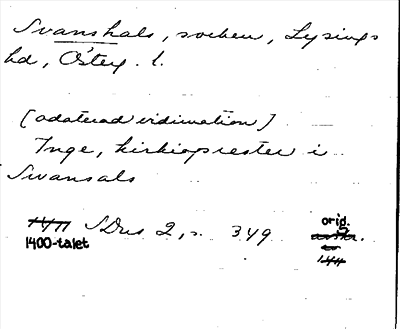 Svanshals, socken, Lysings
hd, Österg. l.
[odaterad vidimation]
Inge, kirkioprester i
Swansals
1411 SDns 2, s. 349 orig.
1400-talet